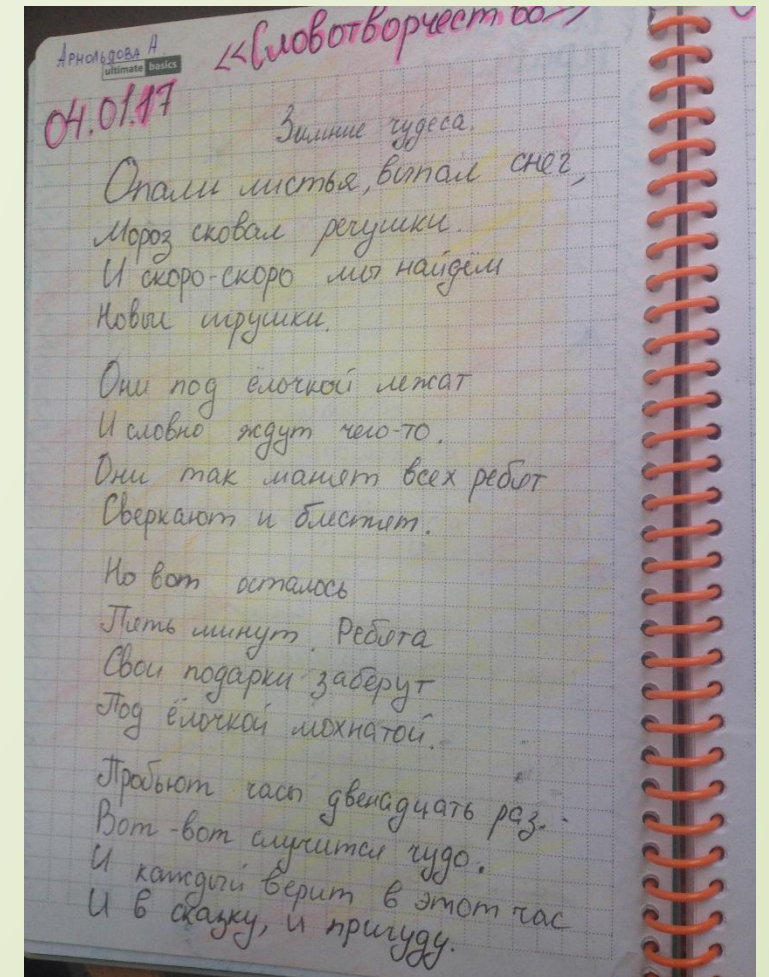 «Словотворчество»
Арнольдова А.
ultimate basics
04.01.17
Зимние чудеса.
Опали листья, выпал снег,
Мороз сковал речушки.
И скоро-скоро мы найдём
Новыи игрушки.
Они под ёлочкой лежат
И словно ждут чего-то.
Они так манят всех ребят
Сверкают и блестят.
Но вот осталось
Пять минут. Ребята
Свои подарки заберут
Под ёлочкой мохнатой.
Пробьют часы двенадцать раз.
Вот-вот случится чудо.
И каждый верит в этот час
И в сказку, и причуду.